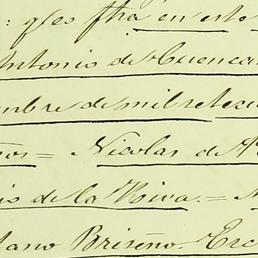 : q.e es fha en este
Antonio de Cuenca
mbre de mil setecie
ños = Nicolas de
is de la Roiva. =
tano Briseño Esc